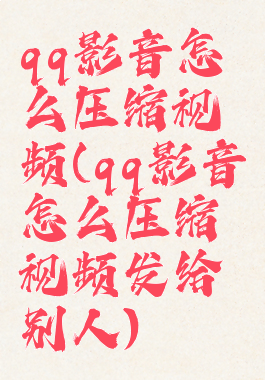 qq影音怎
么压缩视
频(qq影音
怎么压缩
视频发给
别人)